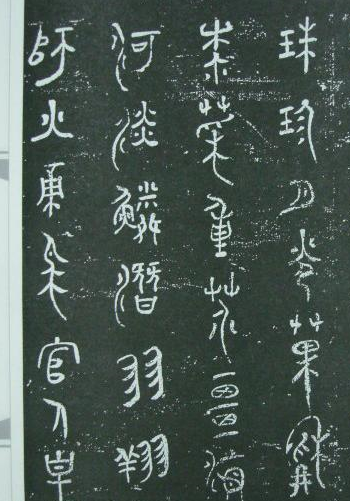 珠珍月光菓
柰菜重芥畺海
河淡鱗潛羽翔
師火帝鳥官人皇